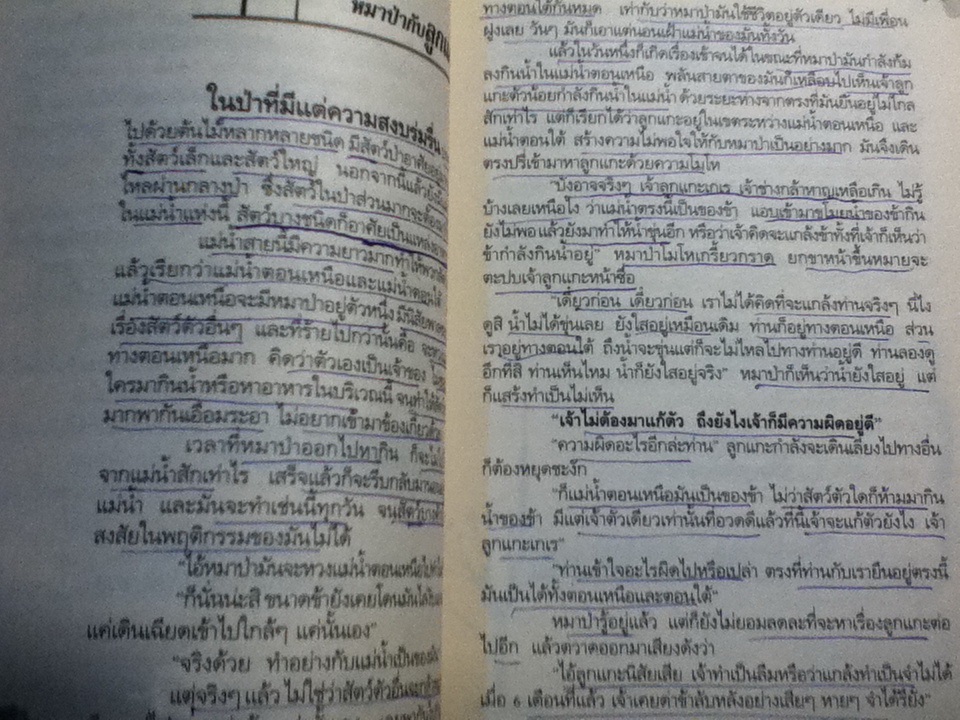 หมาป่ากับลูกแกะ
ในป่าที่มีแต่ความสงบร่มรื่น
ไปด้วยต้นไม้หลากหลายชนิด มีสัตว์ป่าอาศัยอยู่
ทั้งสัตว์เล็กและสัตว์ใหญ่ นอกจากนี้แล้วยัง
ไหลผ่านกลางป่า ซึ่งสัตว์ในป่าส่วนมากจะต้อง
ในแม่น้ำแห่งนี้ สัตว์บางชนิดก็อาศัยเป็นแหล่ง
แม่น้ำสายนี้มีความยาวมากทำให้พวก
แล้วเรียกว่าแม่น้ำตอนเหนือและแม่น้ำตอนใต้
แม่น้ำตอนเหนือจะมีหมาป่าอยู่ตัวหนึ่ง มีนิสัยพาล
เรื่องสัตว์ตัวอื่นๆ และที่ร้ายไปกว่านั้นคือ จะหวง
ทางตอนเหนือมาก คิดว่าตัวเองเป็นเจ้าของ
ใครมากินน้ำหรือหาอาหารในบริเวณนี้ จนทำให้สัตว์
มากพากันเอือมระอา ไม่อยากเข้ามาข้องเกี่ยวด้วย
เวลาที่หมาป่าออกไปหากิน ก็จะไม่
จากแม่น้ำสักเท่าไร เสร็จแล้วก็จะรีบกลับมานอน
แม่น้ำ และมันจะทำเช่นนี้ทุกวัน จนสัตว์บาง
สงสัยในพฤติกรรมของมันไม่ได้
"ไอ้หมาป่ามันจะหวงแม่น้ำตอนเหนือไป
"ก็นั่นน่ะสิ ขนาดข้ายังเคยโดนมันไล่
แค่เดินเฉียดเข้าไปใกล้ๆ แค่นั้นเอง"
"จริงด้วย ทำอย่างกับแม่น้ำเป็นของ
แต่จริงๆ แล้ว ไม่ใช่ว่าสัตว์ตัวอื่นจะ
ทางตอนใต้กันหมด เท่ากับว่าหมาป่ามันใช้ชีวิตอยู่ตัวเดียว ไม่มีเพื่อน
ฝูงเลย วันๆ มันก็เอาแต่นอนเฝ้าแม่น้ำของมันทั้งวัน
แล้วในวันหนึ่งก็เกิดเรื่องเข้าจนได้ในขณะที่หมาป่ามันกำลังก้ม
ลงกินน้ำในแม่น้ำตอนเหนือ พลันสายตาของมันก็เหลือบไปเห็นเจ้าลูก
แกะตัวน้อยกำลังกินน้ำในแม่น้ำ ด้วยระยะห่างจากตรงที่มันยืนอยู่ไม่ไกล
สักเท่าไร แต่ก็เรียกได้ว่าลูกแกะอยู่ในเขตระหว่างแม่น้ำตอนเหนือ และ
แม่น้ำตอนใต้ สร้างความไม่พอใจให้กับหมาป่าเป็นอย่างมาก มันจึงเดิน
ตรงปรี่เข้ามาหาลูกแกะด้วยความโมโห
"บังอาจจริงๆ เจ้าลูกแกะเกเร เจ้าช่างกล้าหาญเหลือเกิน ไม่รู้
บ้างเลยเหนือไง ว่าแม่น้ำตรงนี้เป็นของข้า แอบเข้ามาขโมยน้ำของข้ากิน
ยังไม่พอ แล้วยังมาทำให้น้ำขุ่นอีก หรือว่าเจ้าคิดจะแกล้งข้าทั้งที่เจ้าก็เห็นว่า
ข้ากำลังกินน้ำอยู่" หมาป่าโมโหเกรี้ยวกราด ยกขาหน้าขึ้นหมายจะ
ตะปบเจ้าลูกแกะหน้าซื่อ
"เดี๋ยวก่อน เดี๋ยวก่อน เราไม่ได้คิดที่จะแกล้งท่านจริงๆ นี่ไง
ดูสิ น้ำไม่ได้ขุ่นเลย ยังใสอยู่เหมือนเดิม ท่านก็อยู่ทางตอนเหนือ ส่วน
เราอยู่ทางตอนใต้ ถึงน้ำจะขุ่นแต่ก็จะไม่ไหลไปทางท่านอยู่ดี ท่านลองดู
อีกทีสิ ท่านเห็นไหม น้ำก็ยังใสอยู่จริง" หมาป่าก็เห็นว่าน้ำยังใสอยู่ แต่
ก็แสร้งทำเป็นไม่เห็น
"เจ้าไม่ต้องมาแก้ตัว ถึงยังไงเจ้าก็มีความผิดอยู่ดี"
"ความผิดอะไรอีกล่ะท่าน" ลูกแกะกำลังจะเดินเลี่ยงไปทางอื่น
ก็ต้องหยุดชะงัก
"ก็แม่น้ำตอนเหนือมันเป็นของข้า ไม่ว่าสัตว์ตัวใดก็ห้ามมากิน
น้ำของข้า มีแต่เจ้าตัวเดียวเท่านั้นที่อวดดีแล้วที่นี้เจ้าจะแก้ตัวยังไง เจ้า
ลูกแกะเกเร"
"ท่านเข้าใจอะไรผิดไปหรือเปล่า ตรงที่ท่านกับเรายืนอยู่ตรงนี้
มันเป็นได้ทั้งตอนเหนือและตอนใต้"
หมาป่ารู้อยู่แล้ว แต่ก็ยังไม่ยอมลดละที่จะหาเรื่องลูกแกะต่อ
ไปอีก แล้วตวาดออกมาเสียงดังว่า
"ไอ้ลูกแกะนิสัยเสีย เจ้าทำเป็นลืมหรือว่าแกล้งทำเป็นจำไม่ได้
เมื่อ 6 เดือนที่แล้ว เจ้าเคยด่าข้าลับหลังอย่างเสียๆ หายๆ จำได้รึยัง"